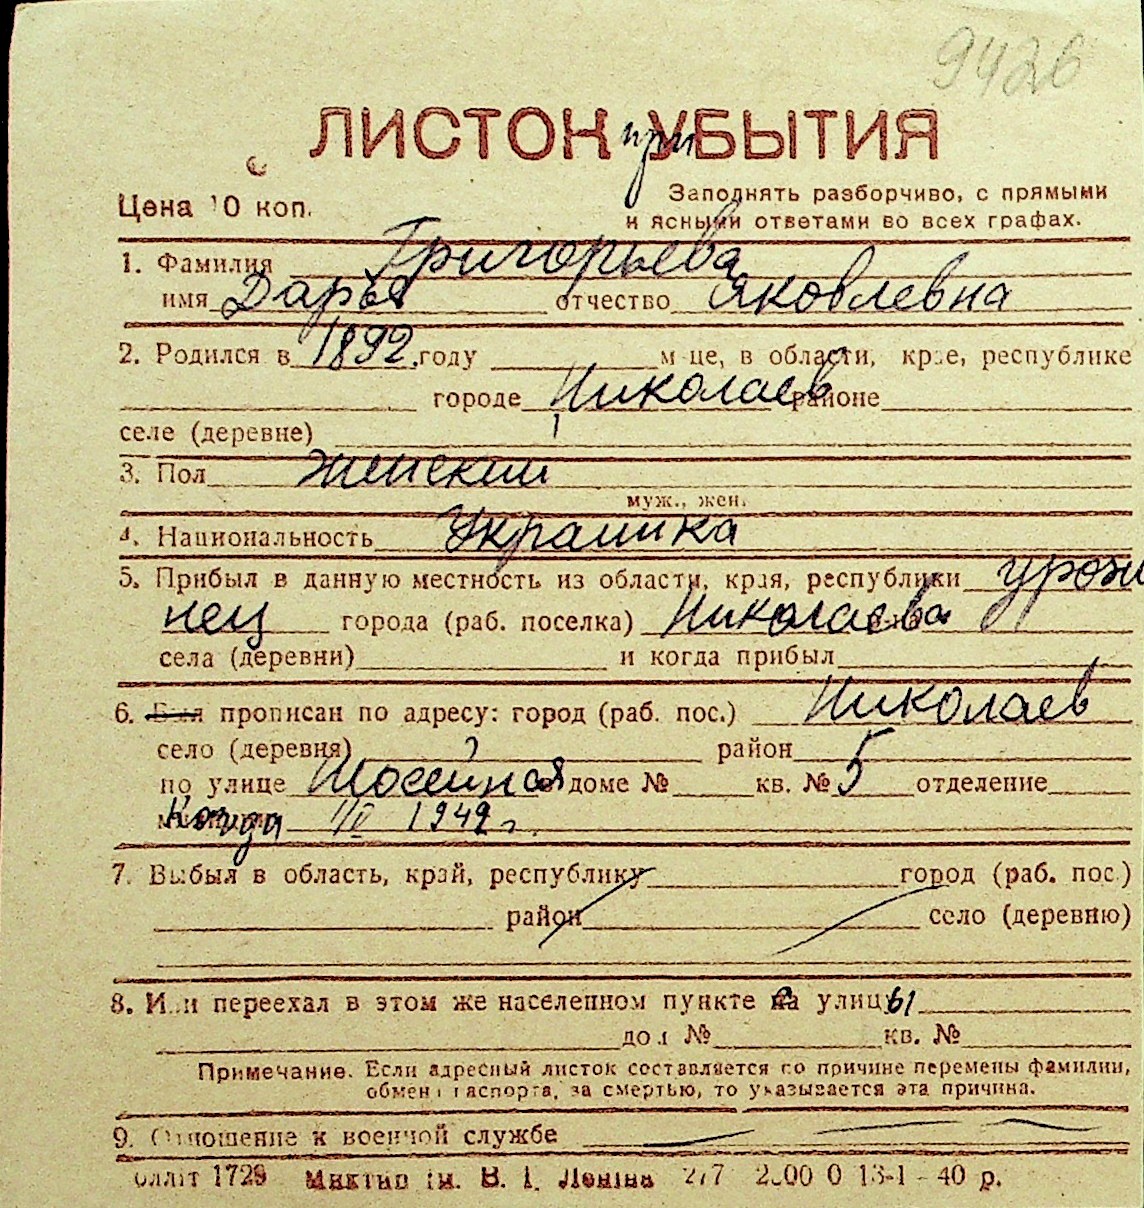 9426
ЛИСТОК при УБЫТИЯ
Цена 10 коп.
Заполнять разборчиво, с прямыми
и ясными ответами во всех графах.
1. Фамилия Григорьева
имя Дарья отчество Яковлевна
2. Родился в 1892 году м-це, в области, крае, республике
городе Николаев районе
селе (деревне)
3. Пол женский
муж., жен.
4. Национальность Украинка
5. Прибыл в данную местность из области, края, республики урожe
нец города (раб. поселка) Николаева
села (деревни) и когда прибыл
6. Был прописан по адресу: город (раб. пос.) Николаев
село (деревня) район
по улице доме № кв. № 5 отделение
Когда 1949 г.
7. Выбыл в область, край, республику город (раб. пос.)
район село (деревню)
8. Или переехал в этом же населенном пункте с улицы
дом № кв. №
Примечание. Если адресный листок составляется по причине перемены фамилии,
обмена паспорта, за смертью, то указывается эта причина.
9. Отношение к военной службе
1729 ім. В. І. Леніна 277 13-1 - 40 р.